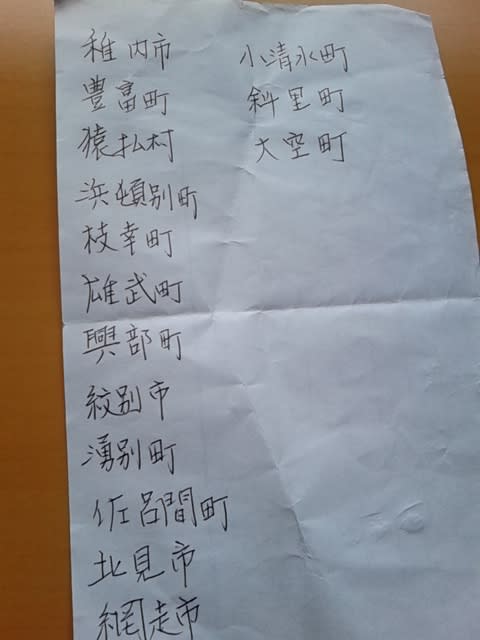 稚内市
豊富町
猿払村
浜頓別町
枝幸町
雄武町
興部町
紋別市
湧別町
佐呂間町
北見市
網走市
小清水町
斜里町
大空町